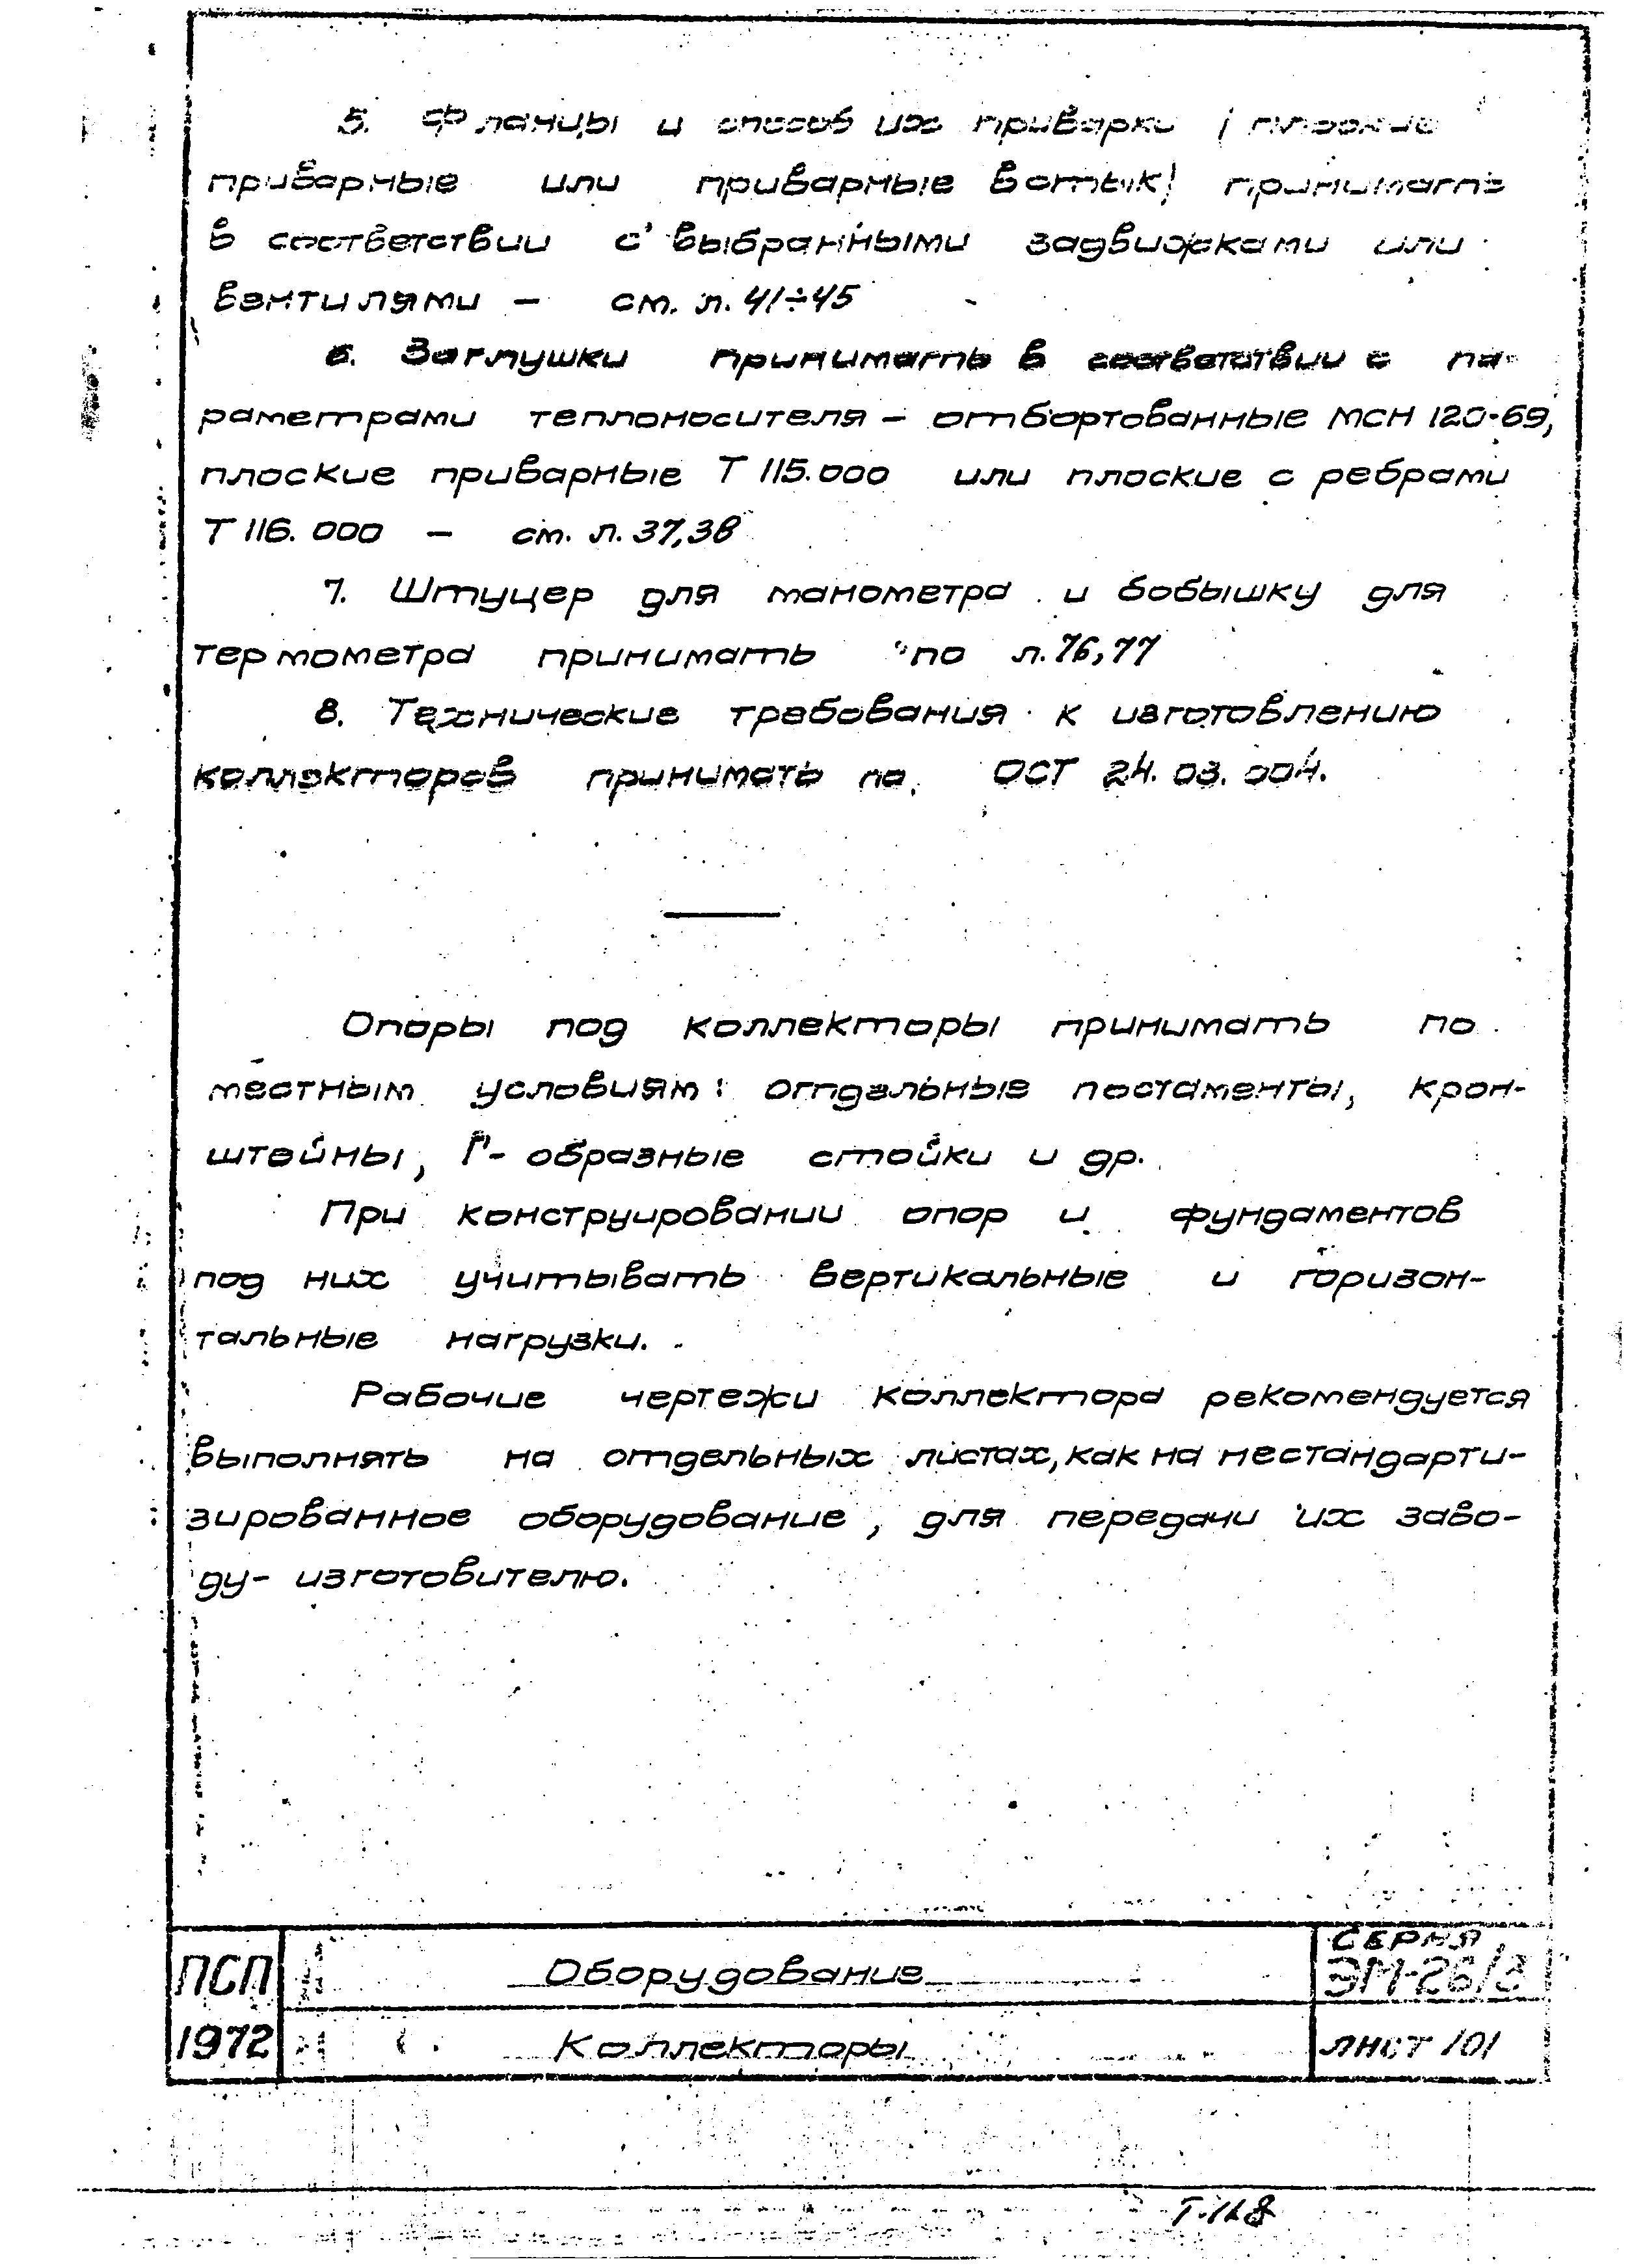 5. Фланцы и способ их приварки (плоские
приварные или приварные встык) принимать
в соответствии с выбранными задвижками или
вентилями – см. л. 41÷45
6. Заглушки принимать в соответствии с па-
раметрами теплоносителя – отбортованные МСН 120-69,
плоские приварные Т 115.000 или плоские с ребрами
Т 116.000 – см. л. 37,38
7. Штуцер для манометра и бобышку для
термометра принимать по л. 76,77
8. Технические требования к изготовлению
коллекторов принимать по ОСТ 24.03.004.
Опоры под коллекторы принимать по
местным условиям: отдельные постаменты, крон-
штейны, Г-образные стойки и др.
При конструировании опор и фундаментов
под них учитывать вертикальные и горизон-
тальные нагрузки.
Рабочие чертежи коллектора рекомендуется
выполнять на отдельных листах, как на нестандарти-
зированное оборудование, для передачи их заво-
ду-изготовителю.
ПСП
1972
Оборудование
Коллекторы
СЕРИЯ
ЛИСТ 101